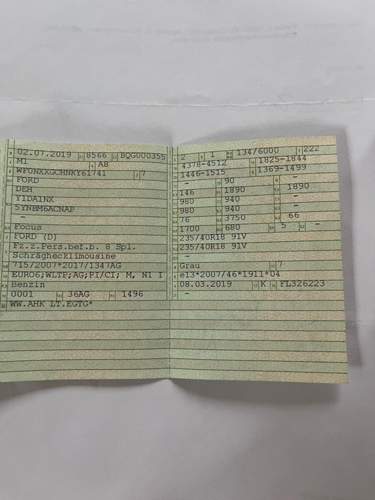 02.07.2019 8566 BQG000355
M1 AB
WF0NXXGCHNKY61741 7
FORD
DEH
Y1DA1NX
5YNBM6ACNAP
–
Focus
FORD (D)
Fz.z.Pers.bef.b. 8 Spl.
Schräghecklimousine
715/2007*2017/1347AG
EURO6;WLTP;AG;PI/CI; M, N1 I
Benzin
0001 36AG 1496
WW.AHK LT.EGTG*
2 1 134/6000 222
4378-4512 1825-1844
1446-1515 1369-1499
– 90 –
146 1890 1890
980 940 –
980 940 –
76 3750 66
1700 680 5 –
235/40R18 91V
235/40R18 91V
–
Grau 7
e13*2007/46*1911*04
08.03.2019 K FL326223
–